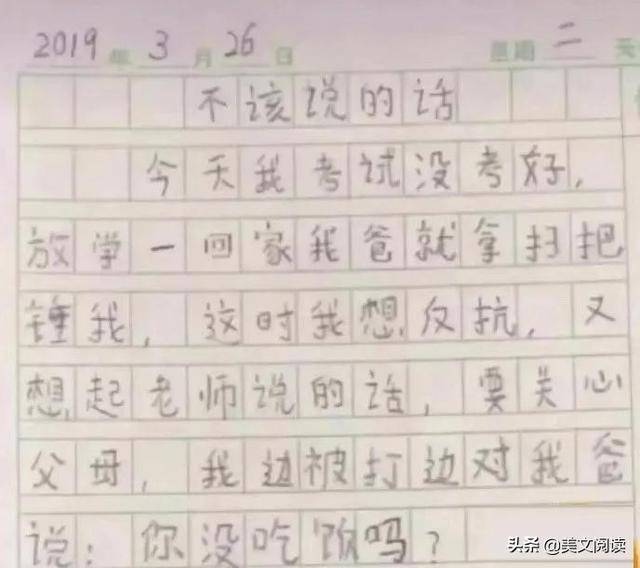 2019年3月26日 星期二 天
不该说的话
今天我考试没考好，
放学一回家我爸就拿扫把
锤我，这时我想反抗，又
想起老师说的话，要关心
父母，我边被打边对我爸
说：你没吃饭吗？
头条 @美文阅读